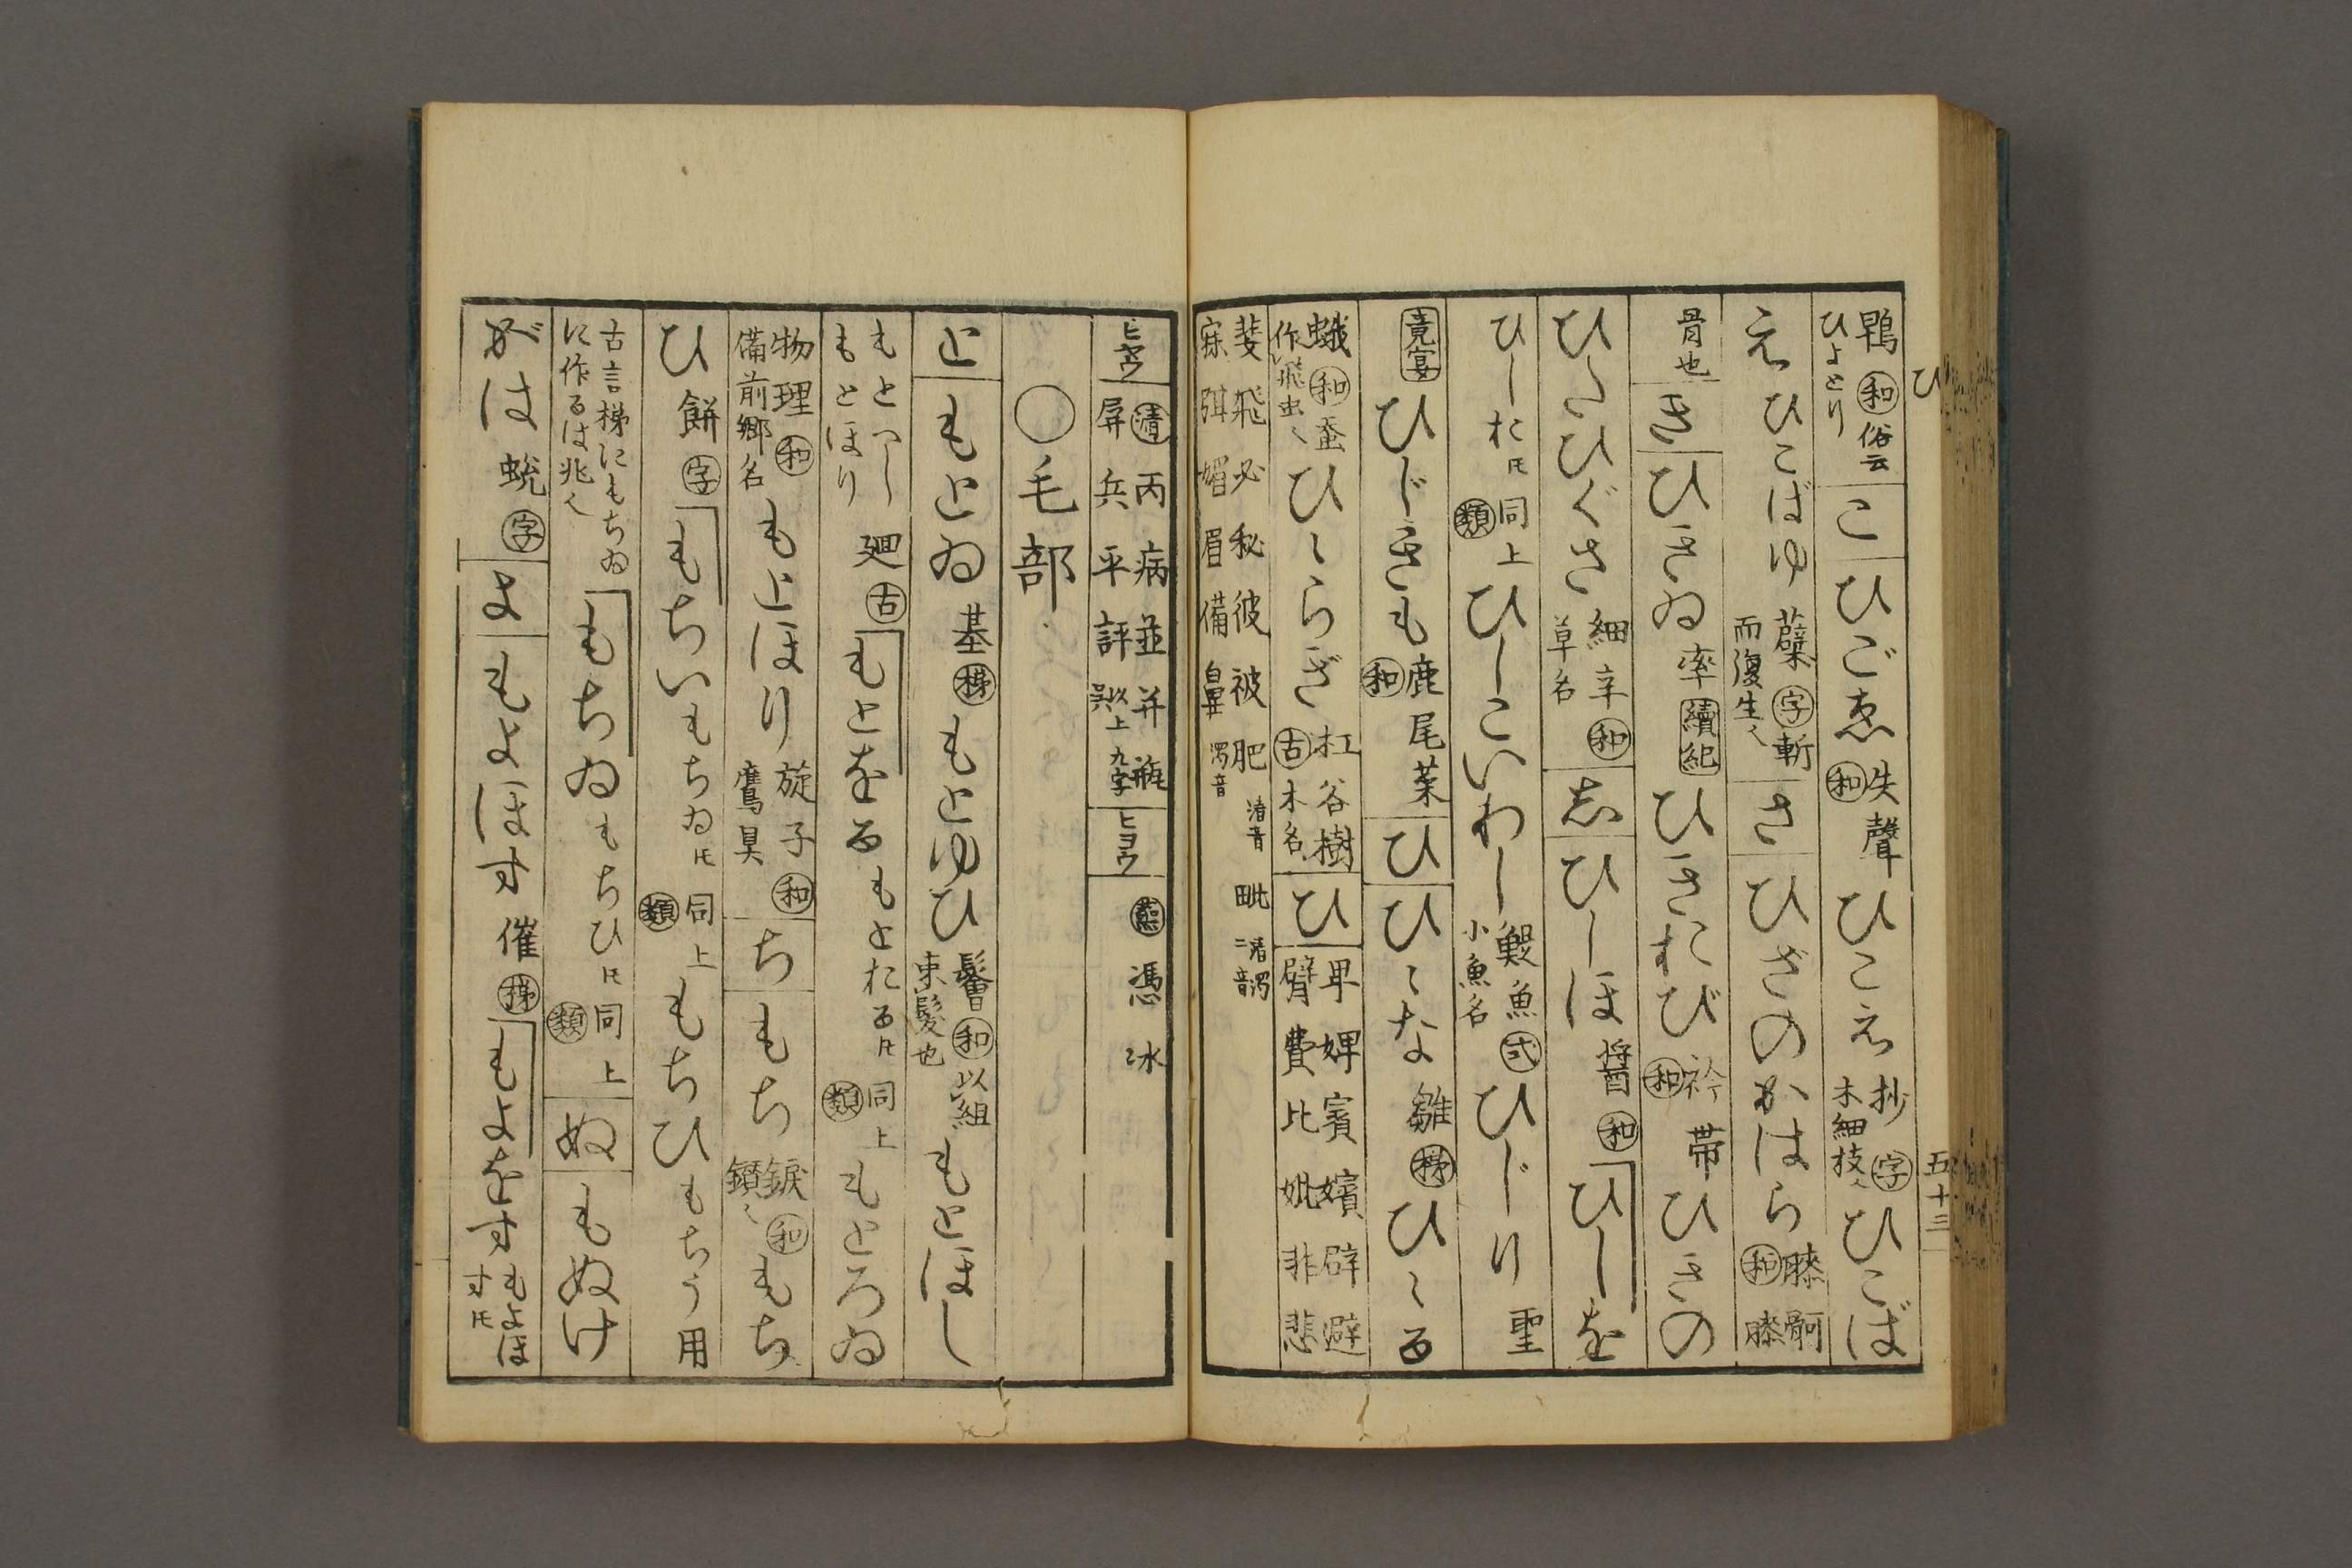 ひ
五十三
鵯 和 俗云ひよとり こ ひごゑ 失聲 和 ひこえ 抄 字 木細枝 ひこば
え ひこばゆ 蘖 字 斬而復生 さ ひざのかはら 膝骬 和 膝
骨也 き ひきゐ 率 續紀 ひきおび 衿帯 和 ひきの
ひたひぐさ 細辛 和 草名 志 ひしほ 醤 和 ひしを
ひしお 同上 類 ひしこいわし 鯷魚 式 小魚名 ひじり 聖
竟宴 ひじきも 鹿尾菜 和 ひ ひゝな 雛 梯 ひゝる
蛾 和 蚕作飛虫 ひゝらぎ 杠谷樹 古 木名 ひ 卑婢賓嬪辟避臂費比妣非悲
斐飛必秘彼被肥 清音 寐弭媚眉備鼻 濁音 毗 清濁二音
ヒヤウ 清 丙病並并瓶屏兵平評 以上九字呉 ヒヨウ 蒸 憑冰
〇毛部
と もとゐ 基 梯 もとゆひ 鬠 和 以組束髪也 もとほし
もとつし もとほり 廻 古 もとをる もとおる 同上 類 もとろゐ
物理 和 備前郷名 もとほり 旋子 和 鷹具 ち もち 鑽 和 もち
ひ 餅 字 もちい もちゐ 同上 類 もちひ もちう 用
古言梯にもちゐに作るは非 もちゐ もちひ 同上 類 ぬ もぬけ
がは 蛻 字 よ もよほす 催 梯 もよをす もよほす